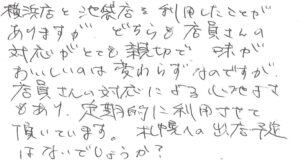 横浜店と池袋店を利用したことが
ありますが どちらも店員さんの
対応がとても親切で 味が
おいしいのは変わらずなのですが、
店員さんの対応による心地よさ
もあり、定期的に利用させて
頂いています。 札幌への出店予定
はないでしょうか？